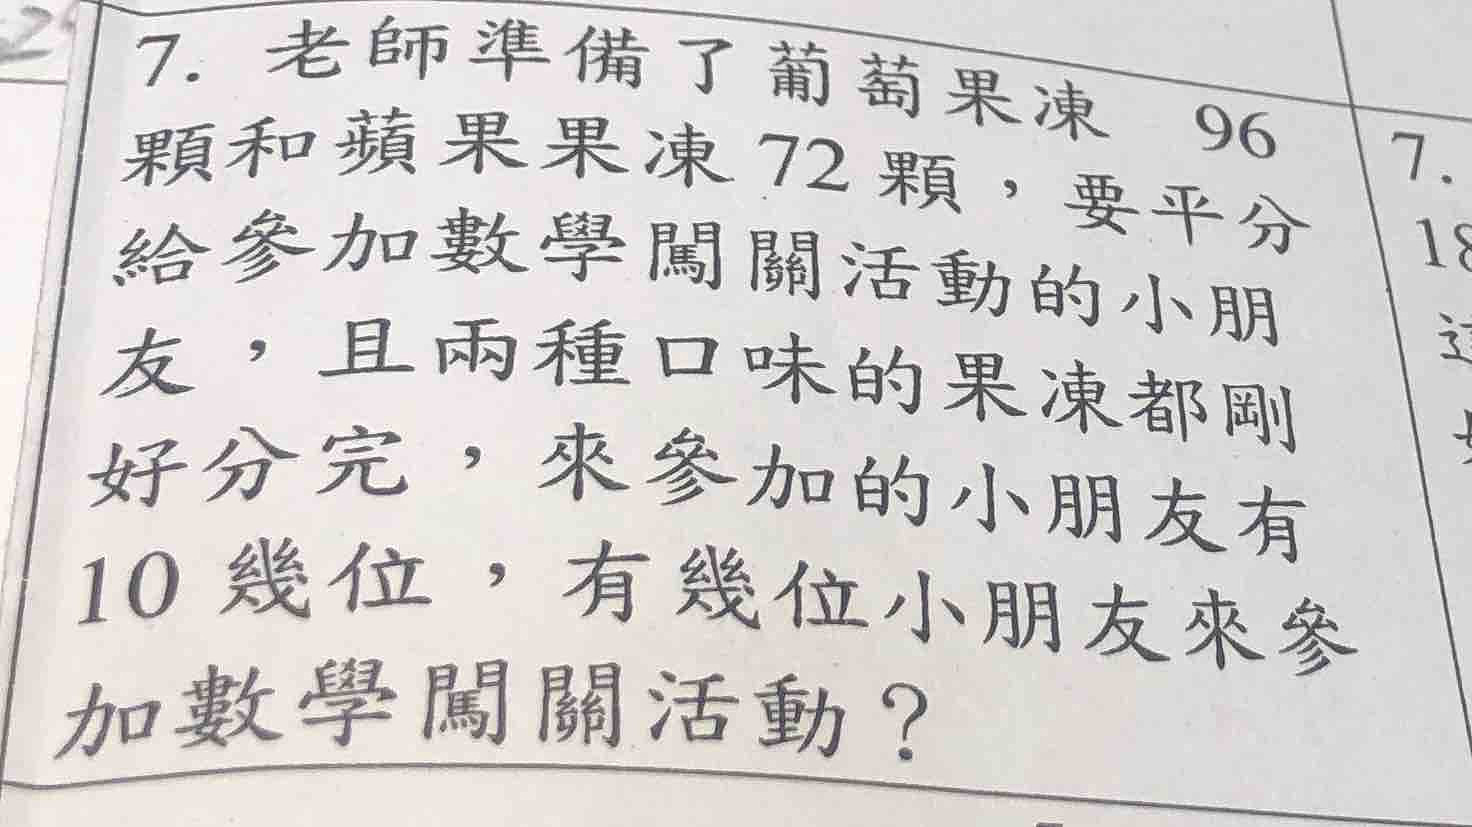 7. 老師準備了葡萄果凍 96
顆和蘋果果凍 72 顆，要平分
給參加數學闖關活動的小朋
友，且兩種口味的果凍都剛
好分完，來參加的小朋友有
10 幾位，有幾位小朋友來參
加數學闖關活動？
7.
18